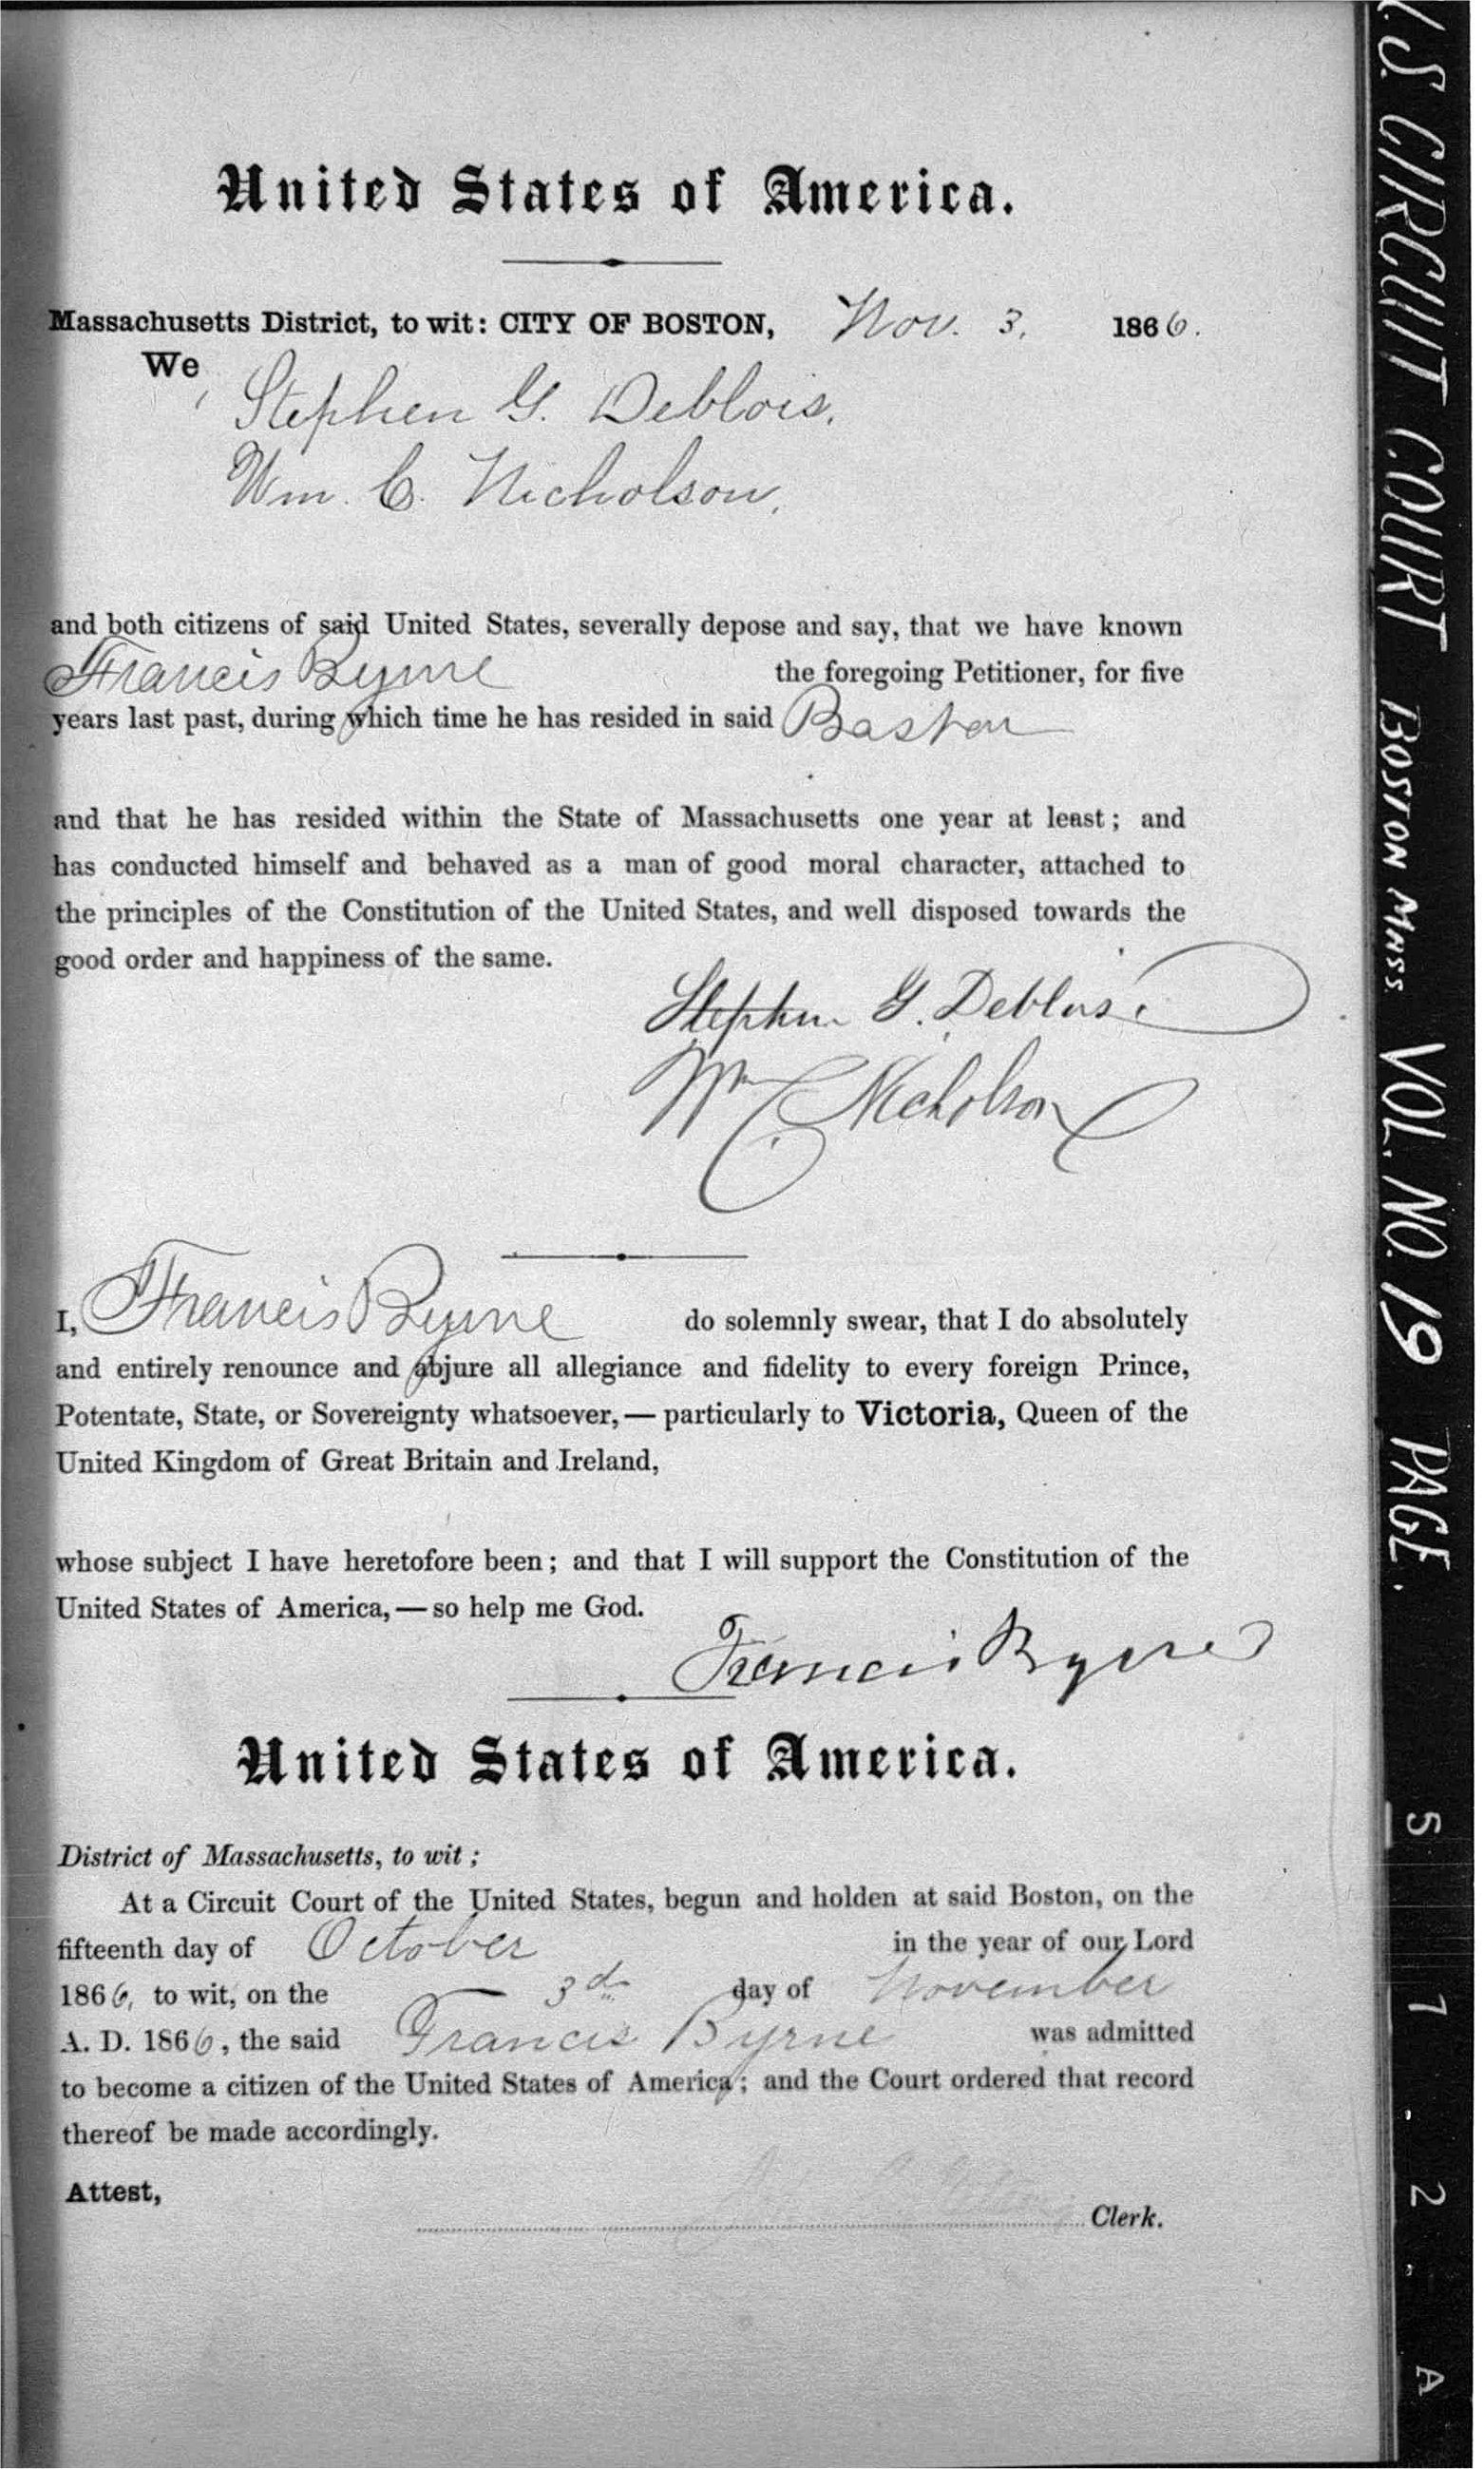 United States of America.
Massachusetts District, to wit: CITY OF BOSTON, Nov. 3, 1866.
We
Stephen G. Deblois,
Wm. C. Nicholson,
and both citizens of said United States, severally depose and say, that we have known
Francis Byrne the foregoing Petitioner, for five
years last past, during which time he has resided in said Boston
and that he has resided within the State of Massachusetts one year at least; and
has conducted himself and behaved as a man of good moral character, attached to
the principles of the Constitution of the United States, and well disposed towards the
good order and happiness of the same.
Stephen G. Deblois.
Wm C Nicholson
I, Francis Byrne do solemnly swear, that I do absolutely
and entirely renounce and abjure all allegiance and fidelity to every foreign Prince,
Potentate, State, or Sovereignty whatsoever,— particularly to Victoria, Queen of the
United Kingdom of Great Britain and Ireland,
whose subject I have heretofore been; and that I will support the Constitution of the
United States of America,— so help me God.
Francis Byrne
United States of America.
District of Massachusetts, to wit;
At a Circuit Court of the United States, begun and holden at said Boston, on the
fifteenth day of October in the year of our Lord
1866, to wit, on the 3d day of November
A. D. 1866, the said Francis Byrne was admitted
to become a citizen of the United States of America; and the Court ordered that record
thereof be made accordingly.
Attest,
Clerk.
U.S. CIRCUIT COURT BOSTON MASS. VOL. NO. 19 PAGE. 5 1 . 2 . A